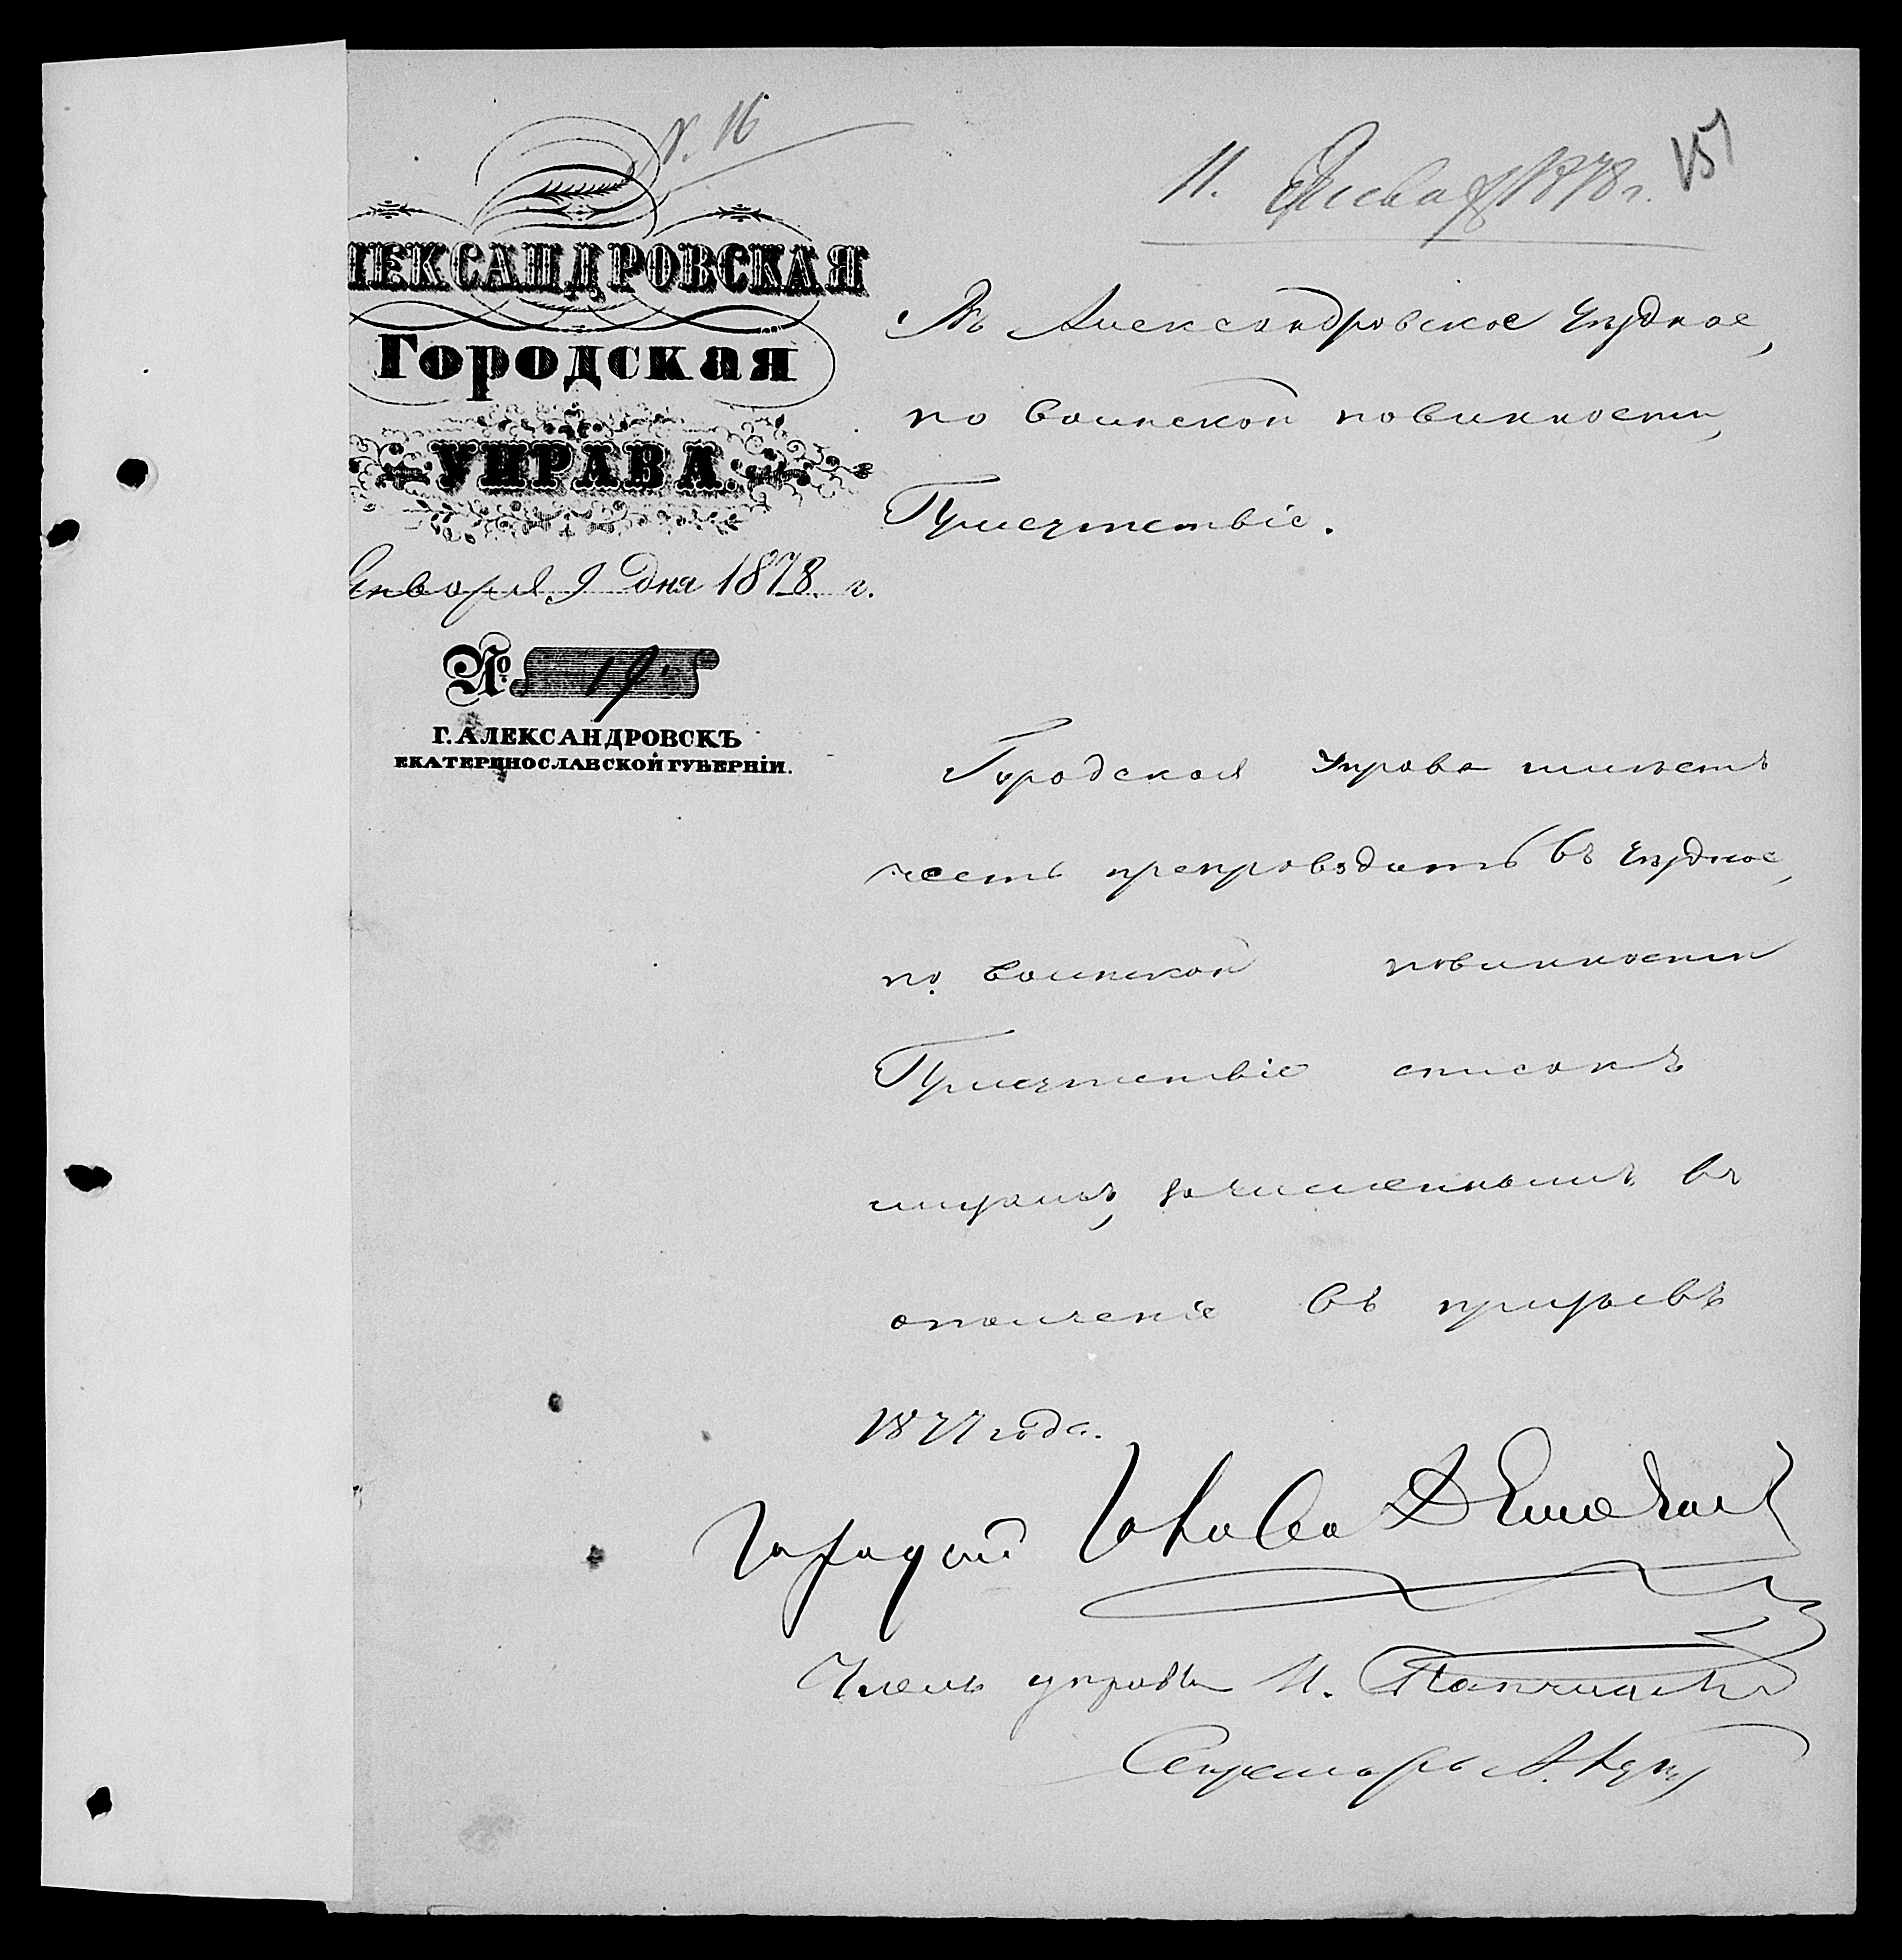 N. 16
11. Января 1878 г.
15
ЛЕКСАНДРОВСКАЯ
Городская
УПРАВА.
Января 9 дня 1878 г.
№ 19
Г. АЛЕКСАНДРОВСКЪ
ЕКАТЕРИНОСЛАВСКОЙ ГУБЕРНІИ.
Въ Александровское Уѣздное,
по воинской повинности,
Присутствіе.
Городская Управа имѣетъ
честь препроводить въ Уѣздное,
по воинской повинности
Присутствіе списокъ
лицамъ, зачисленнымъ въ
ополченіе въ призывъ
1877 года.
Городской Голова
Членъ управы И.
Секретарь А.